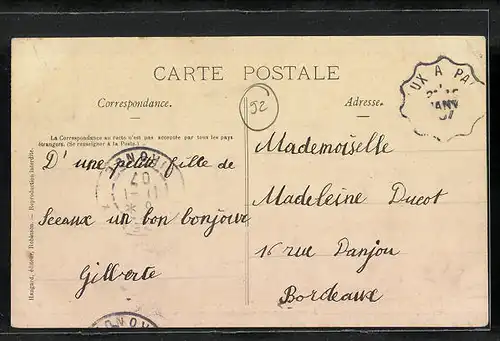 CARTE POSTALE
Correspondance.
Adresse.
52
La Correspondance au recto n'est pas acceptée par tous les pays
étrangers. (Se renseigner à la Poste.)
D'une petite fille de
Sceaux un bon bonjour
Gilberte
Mademoiselle
Madeleine Ducot
16 rue Danjou
Bordeaux
UX A PA
JANV
07
GIRONDE
07
Hangard, éditeur, Robinson. — Reproduction interdite.